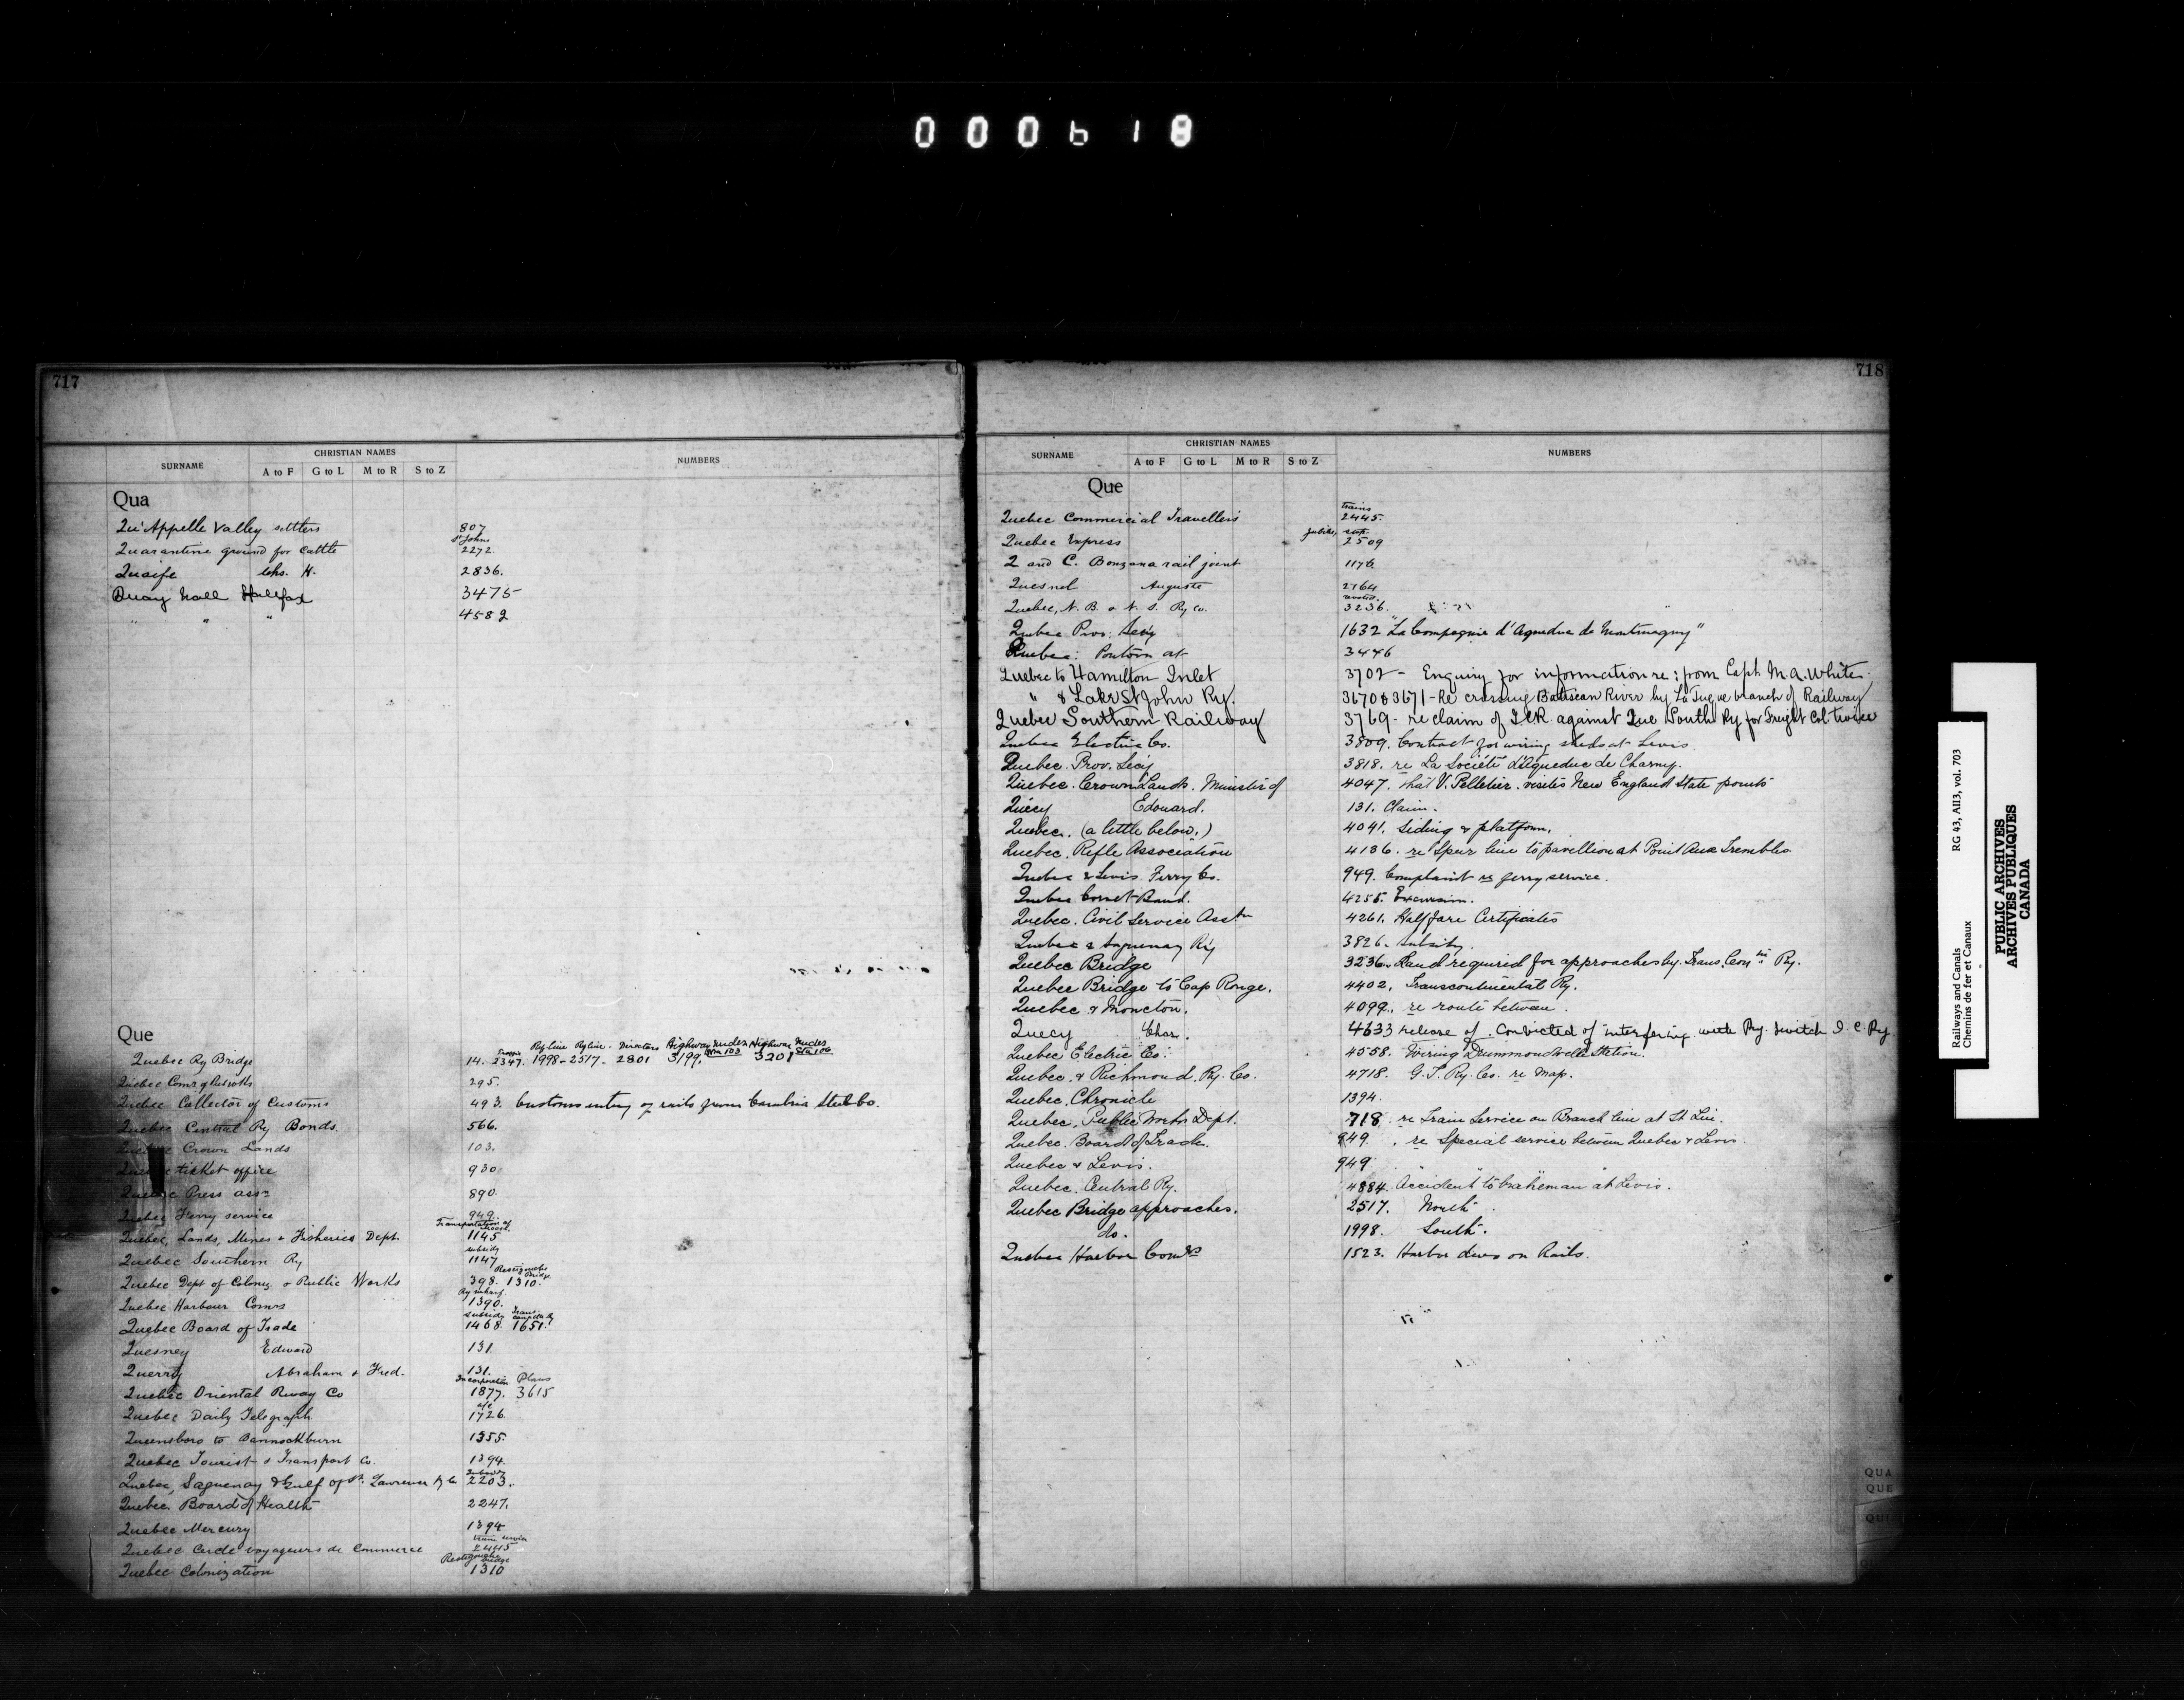 000618
717
SURNAME CHRISTIAN NAMES NUMBERS
A to F G to L M to R S to Z
Qua
Qu'Appelle Valley settlers 807
St Johns
Quarantine ground for Cattle 2272
Quaife Chs. H. 2836.
Quay Wall Halifax 3475
" " " 4582
Que
Ry line Ry line - Directors Highway under Sta 103 Highway under Sta 106
Quebec Ry Bridge 14. 2347. 1998-2517- 2801 3199, 3201
Quebec Comr of 295.
Quebec Collector of Customs 493. Customs entry of rails from Cambria Steel Co.
Quebec Central Ry Bonds. 566.
Quebec Crown Lands 103.
Quebec ticket office 930
Quebec Press assn 890.
Quebec Ferry service 949.
Transportation of
Quebec, Lands, Mines & Fisheries Dept. 1145
subsidy
Quebec Southern Ry 1147
Restigouche Bridge
Quebec Dept of Coloniz. & Public Works 398. 1310.
Ry wharf.
Quebec Harbour Comrs 1390.
subsidy Trans. Canada Ry
Quebec Board of Trade 1468. 1651.
Quesney Edward 131.
Querry Abraham & Fred. 131.
Incorporation Plans
Quebec Oriental Rway Co 1877. 3615
a/c
Quebec Daily Telegraph 1726.
Queensboro to Bannockburn 1355.
Quebec Tourist & Transport Co. 1394.
Subsidy
Quebec, Saguenay & Gulf of St. Lawrence Ry Co 2203.
Quebec Board of Health 2247.
Quebec Mercury 1394
Train service
Quebec Cercle voyageurs de Commerce 2445
Restigouche bridge
Quebec Colonization 1310
718
SURNAME CHRISTIAN NAMES NUMBERS
A to F G to L M to R S to Z
Que
Trains
Quebec Commercial Travellers 2445.
Quebec Express Jubilee, 2509
Q and C. Bonzana rail joint 1176
Quesnel Auguste 2164
Quebec, N. B. & N. S. Ry Co. 3236.
Quebec Prov: Secy 1632 "La Compagnie d'Aqueduc de Montmagny"
Quebec: Pontoon at 3446
Quebec to Hamilton Inlet 3702 - Enquiry for information re: from Capt. M.A. White.
" & Lake St John Ry. 3670 & 3671 - Re crossing Batiscan River by La Tuque branch of Railway
Quebec Southern Railway 3769 - re claim of I.C.R. against Que South Ry for Freight
Quebec Electric Co. 3809. Contract for wiring sheds at Levis.
Quebec. Prov. Secy 3818. re La Société d'Aqueduc de Charny.
Quebec. Crown Lands. Minister of 4047. that V. Pelletier. visits New England State points
Quécy Edouard. 131. Claim.
Quebec. (a little below.) 4041. Siding & platform.
Quebec. Rifle Association 4136. re Spur line to pavillion at Point Aux Trembles.
Quebec & Levis Ferry Co. 949. Complaint re ferry service.
Quebec Cornet Band. 4255. Excursion.
Quebec. Civil Service Asstn 4261. Half fare Certificates
Quebec & Saguenay Ry 3826. Subsidy.
Quebec Bridge 3236. Land required for approaches by Trans. Con tal Ry.
Quebec Bridge to Cap Rouge. 4402. Transcontinental Ry.
Quebec & Moncton. 4099. re route between.
Quecy Chas. 4633 release of. Convicted of interfering with Ry. switch I.C. Ry
Quebec Electric Co: 4058. Wiring Drummondville Station.
Quebec. & Richmond. Ry. Co. 4718. G.T. Ry. Co. re Map.
Quebec. Chronicle 1394.
Quebec. Public Works Dept. 718. re Train Service on Branch line at St Lin.
Quebec. Board of Trade. 949. re Special service between Quebec & Levis.
Quebec & Levis. 949.
Quebec. Central Ry. 4884. Accident to brakeman at Levis.
Quebec Bridge approaches. 2517. North
do. 1998. South.
Quebec Harbor Comrs 1523. Harbor dues on Rails.
QUA
QUE
QUI
Railways and Canals RG 43, AII3, vol. 703
Chemins de fer et Canaux
PUBLIC ARCHIVES
ARCHIVES PUBLIQUES
CANADA